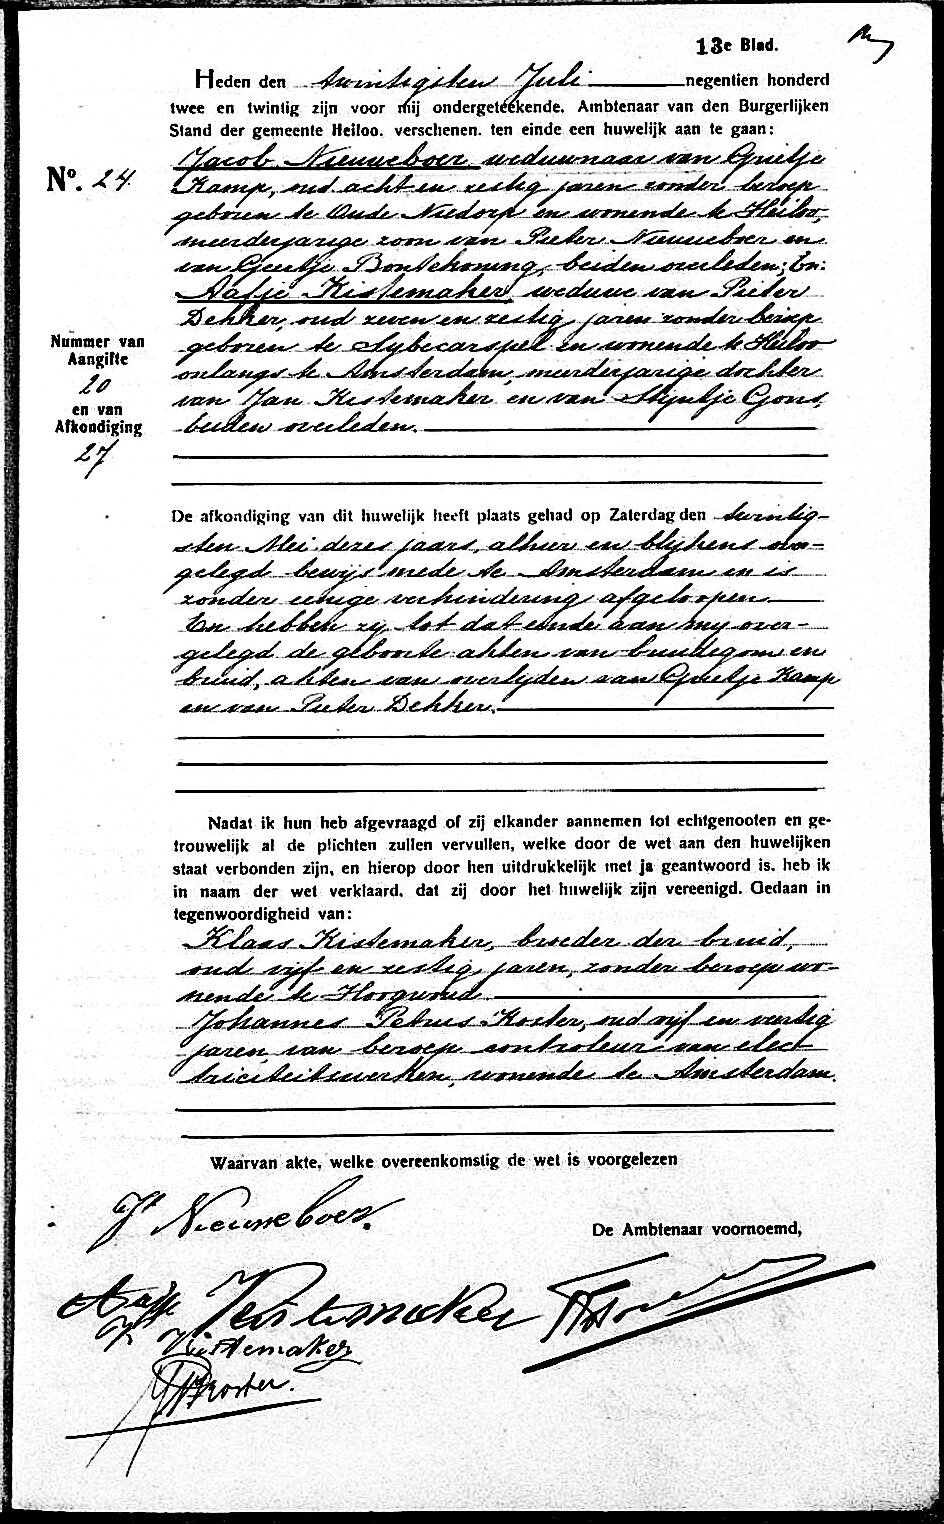 13e Blad.
Heden den twintigsten Juli negentien honderd
twee en twintig zijn voor mij ondergeteekende. Ambtenaar van den Burgerlijken
Stand der gemeente Heiloo. verschenen. ten einde een huwelijk aan te gaan:
No. 24.
Jacob Nieuweboer, weduwnaar van Grietje
Kamp, oud acht en zestig jaren zonder beroep
geboren te Oude Niedorp en wonende te Heiloo,
meerderjarige zoon van Pieter Nieuweboer en
van Geertje Bontekoning, beiden overleden; En:
Aafje Kistemaker, weduwe van Pieter
Dekker, oud zeven en zestig jaren zonder beroep
geboren te Sybecarspel en wonende te Heiloo
onlangs te Amsterdam, meerderjarige dochter
van Jan Kistemaker en van Styntje Gons,
beiden overleden.
Nummer van
Aangifte
20
en van
Afkondiging
27
De afkondiging van dit huwelijk heeft plaats gehad op Zaterdag den twintig-
sten Mei dezes jaars, alhier en blijkens over-
gelegd bewijs mede te Amsterdam en is
zonder eenige verhindering afgeloopen.
En hebben zij tot dat einde aan mij over-
gelegd de geboorte akten van bruidegom en
bruid, akten van overlijden van Grietje Kamp
en van Pieter Dekker.
Nadat ik hun heb afgevraagd of zij elkander aannemen tot echtgenooten en ge-
trouwelijk al de plichten zullen vervullen, welke door de wet aan den huwelijken
staat verbonden zijn, en hierop door hen uitdrukkelijk met ja geantwoord is. heb ik
in naam der wet verklaard. dat zij door het huwelijk zijn vereenigd. Gedaan in
tegenwoordigheid van:
Klaas Kistemaker, broeder der bruid,
oud vijf en zestig jaren, zonder beroep wo-
nende te Hoogwoud
Johannes Petrus Koster, oud vijf en veertig
jaren van beroep controleur van elect
triciteitswerken, wonende te Amsterdam.
Waarvan akte, welke overeenkomstig de wet is voorgelezen
Jb Nieuweboer.
De Ambtenaar voornoemd,
Aafje Kistemaker
K Kistemaker
JP Koster.